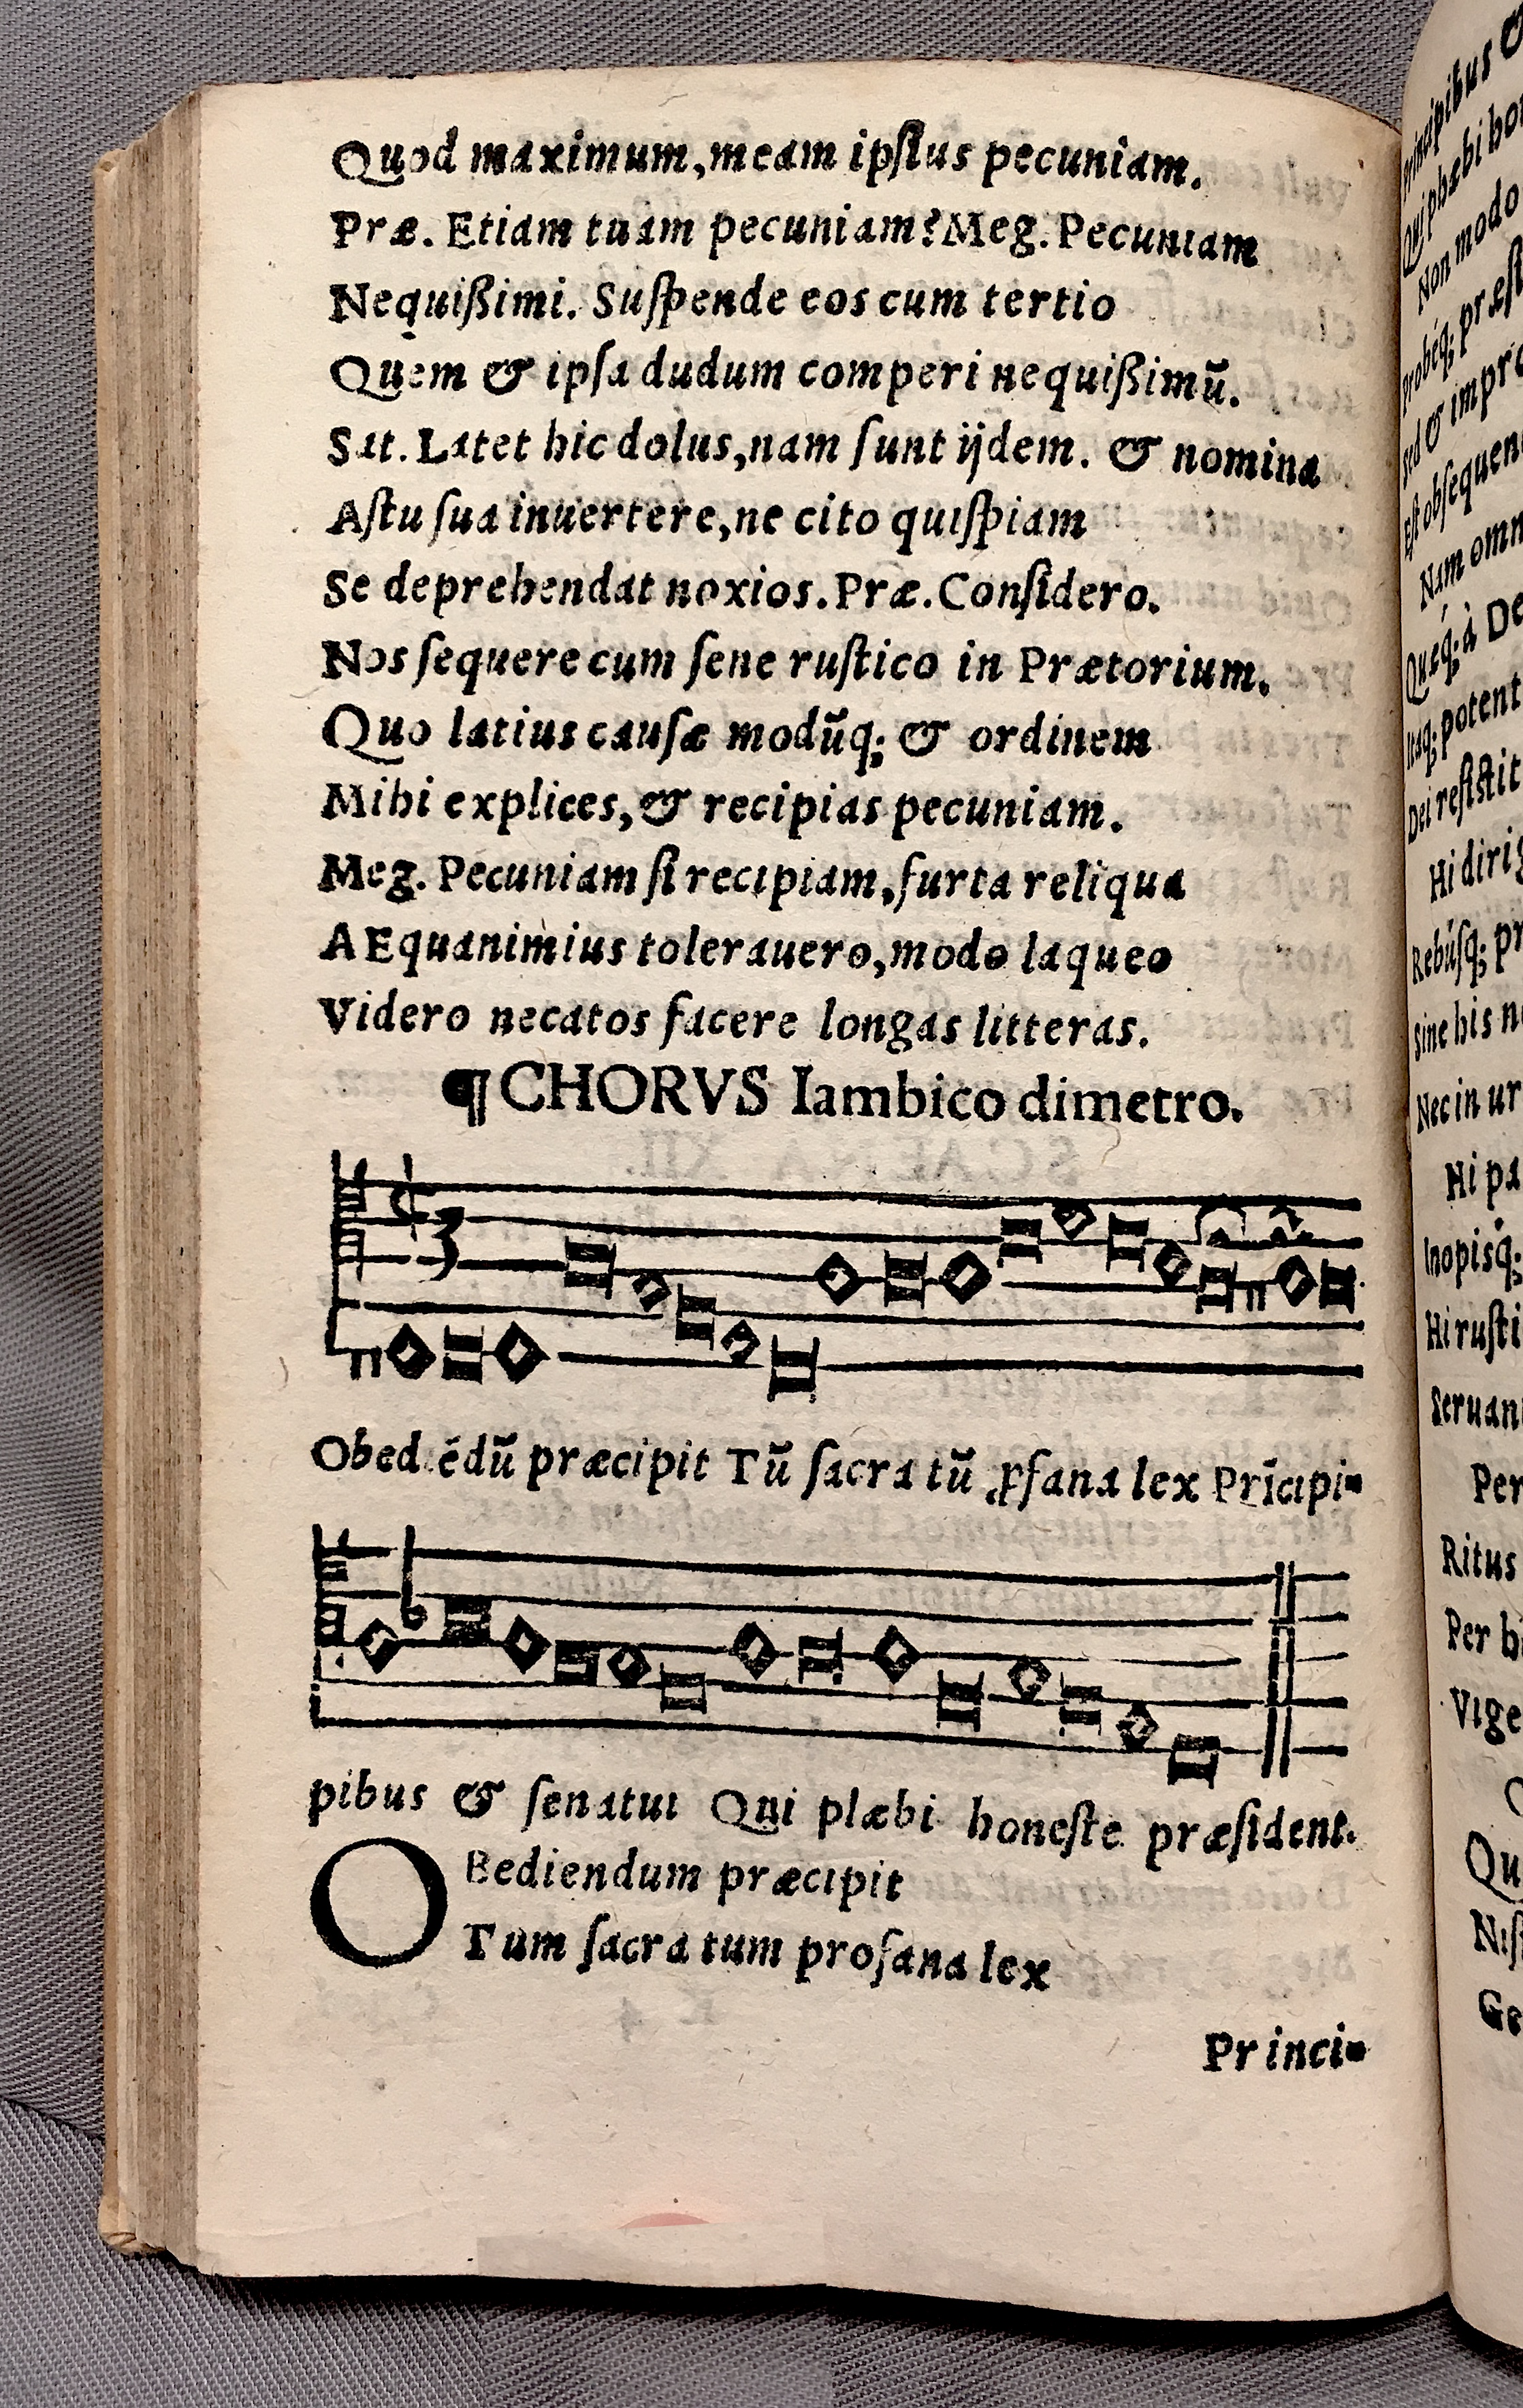 Quod maximum,meam ipſius pecuniam.
Præ. Etiam tuam pecuniam? Meg. Pecuniam
Nequißimi. Suſpende eos cum tertio
Quem & ipſa dudum comperi nequißimũ.
Sat. Latet hic dolus,nam ſunt ijdem. & nomina
Aſtu ſua inuertere,ne cito quiſpiam
Se deprehendat noxios. Præ. Conſidero.
Nos ſequere cum ſene ruſtico in Prætorium.
Quo latius cauſæ modũq; & ordinem
Mihi explices,& recipias pecuniam.
Meg. Pecuniam ſi recipiam,furta reliqua
AEquanimius tolerauero,modo laqueo
Videro necatos facere longas litteras.
¶ CHORVS Iambico dimetro.
Obediẽdũ præcipit Tũ ſacra tũ ꝓfana lex Prĩcipi-
pibus & ſenatui Qui plæbi honeſte præſident.
OBediendum præcipit
Tum ſacra tum profana lex
Princi-
Principibus &
Qui phæbi hon
Non modo
Probéq; præſt
Sed & impro
Eſt obſequen
Nam omn
Quęq; à De
Itaq; potent
Dei reſiſtit
Hi dirig
Rebúſq; pr
Sine his n
Nec in ur
Hi pa
Inopisq;
Hi ruſti
Seruan
Per
Ritus
Per h
Vige
Qu
Niſ
Ge